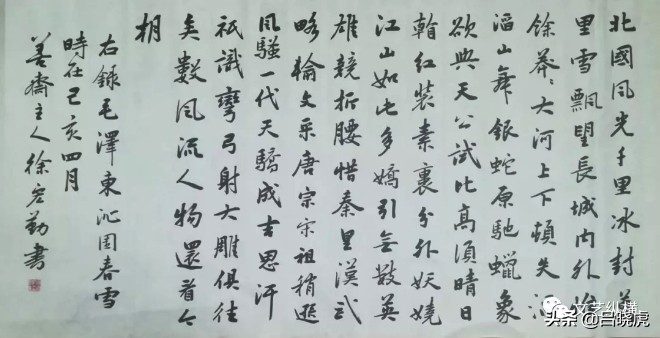 北國風光千里冰封萬
里雪飄望長城內外惟
餘莽〻大河上下頓失滔
滔山舞銀蛇原馳蠟象
欲與天公試比高須晴日
看紅裝素裹分外妖嬈
江山如此多嬌引無數英
雄競折腰惜秦皇漢武
略輸文采唐宗宋祖稍遜
風騷一代天驕成吉思汗
祇識彎弓射大雕俱往
矣數風流人物還看今
朝
右錄毛澤東沁園春雪
時在己亥四月
善齋主人徐宏勤書
文艺纵横
头条 @吕晓虎